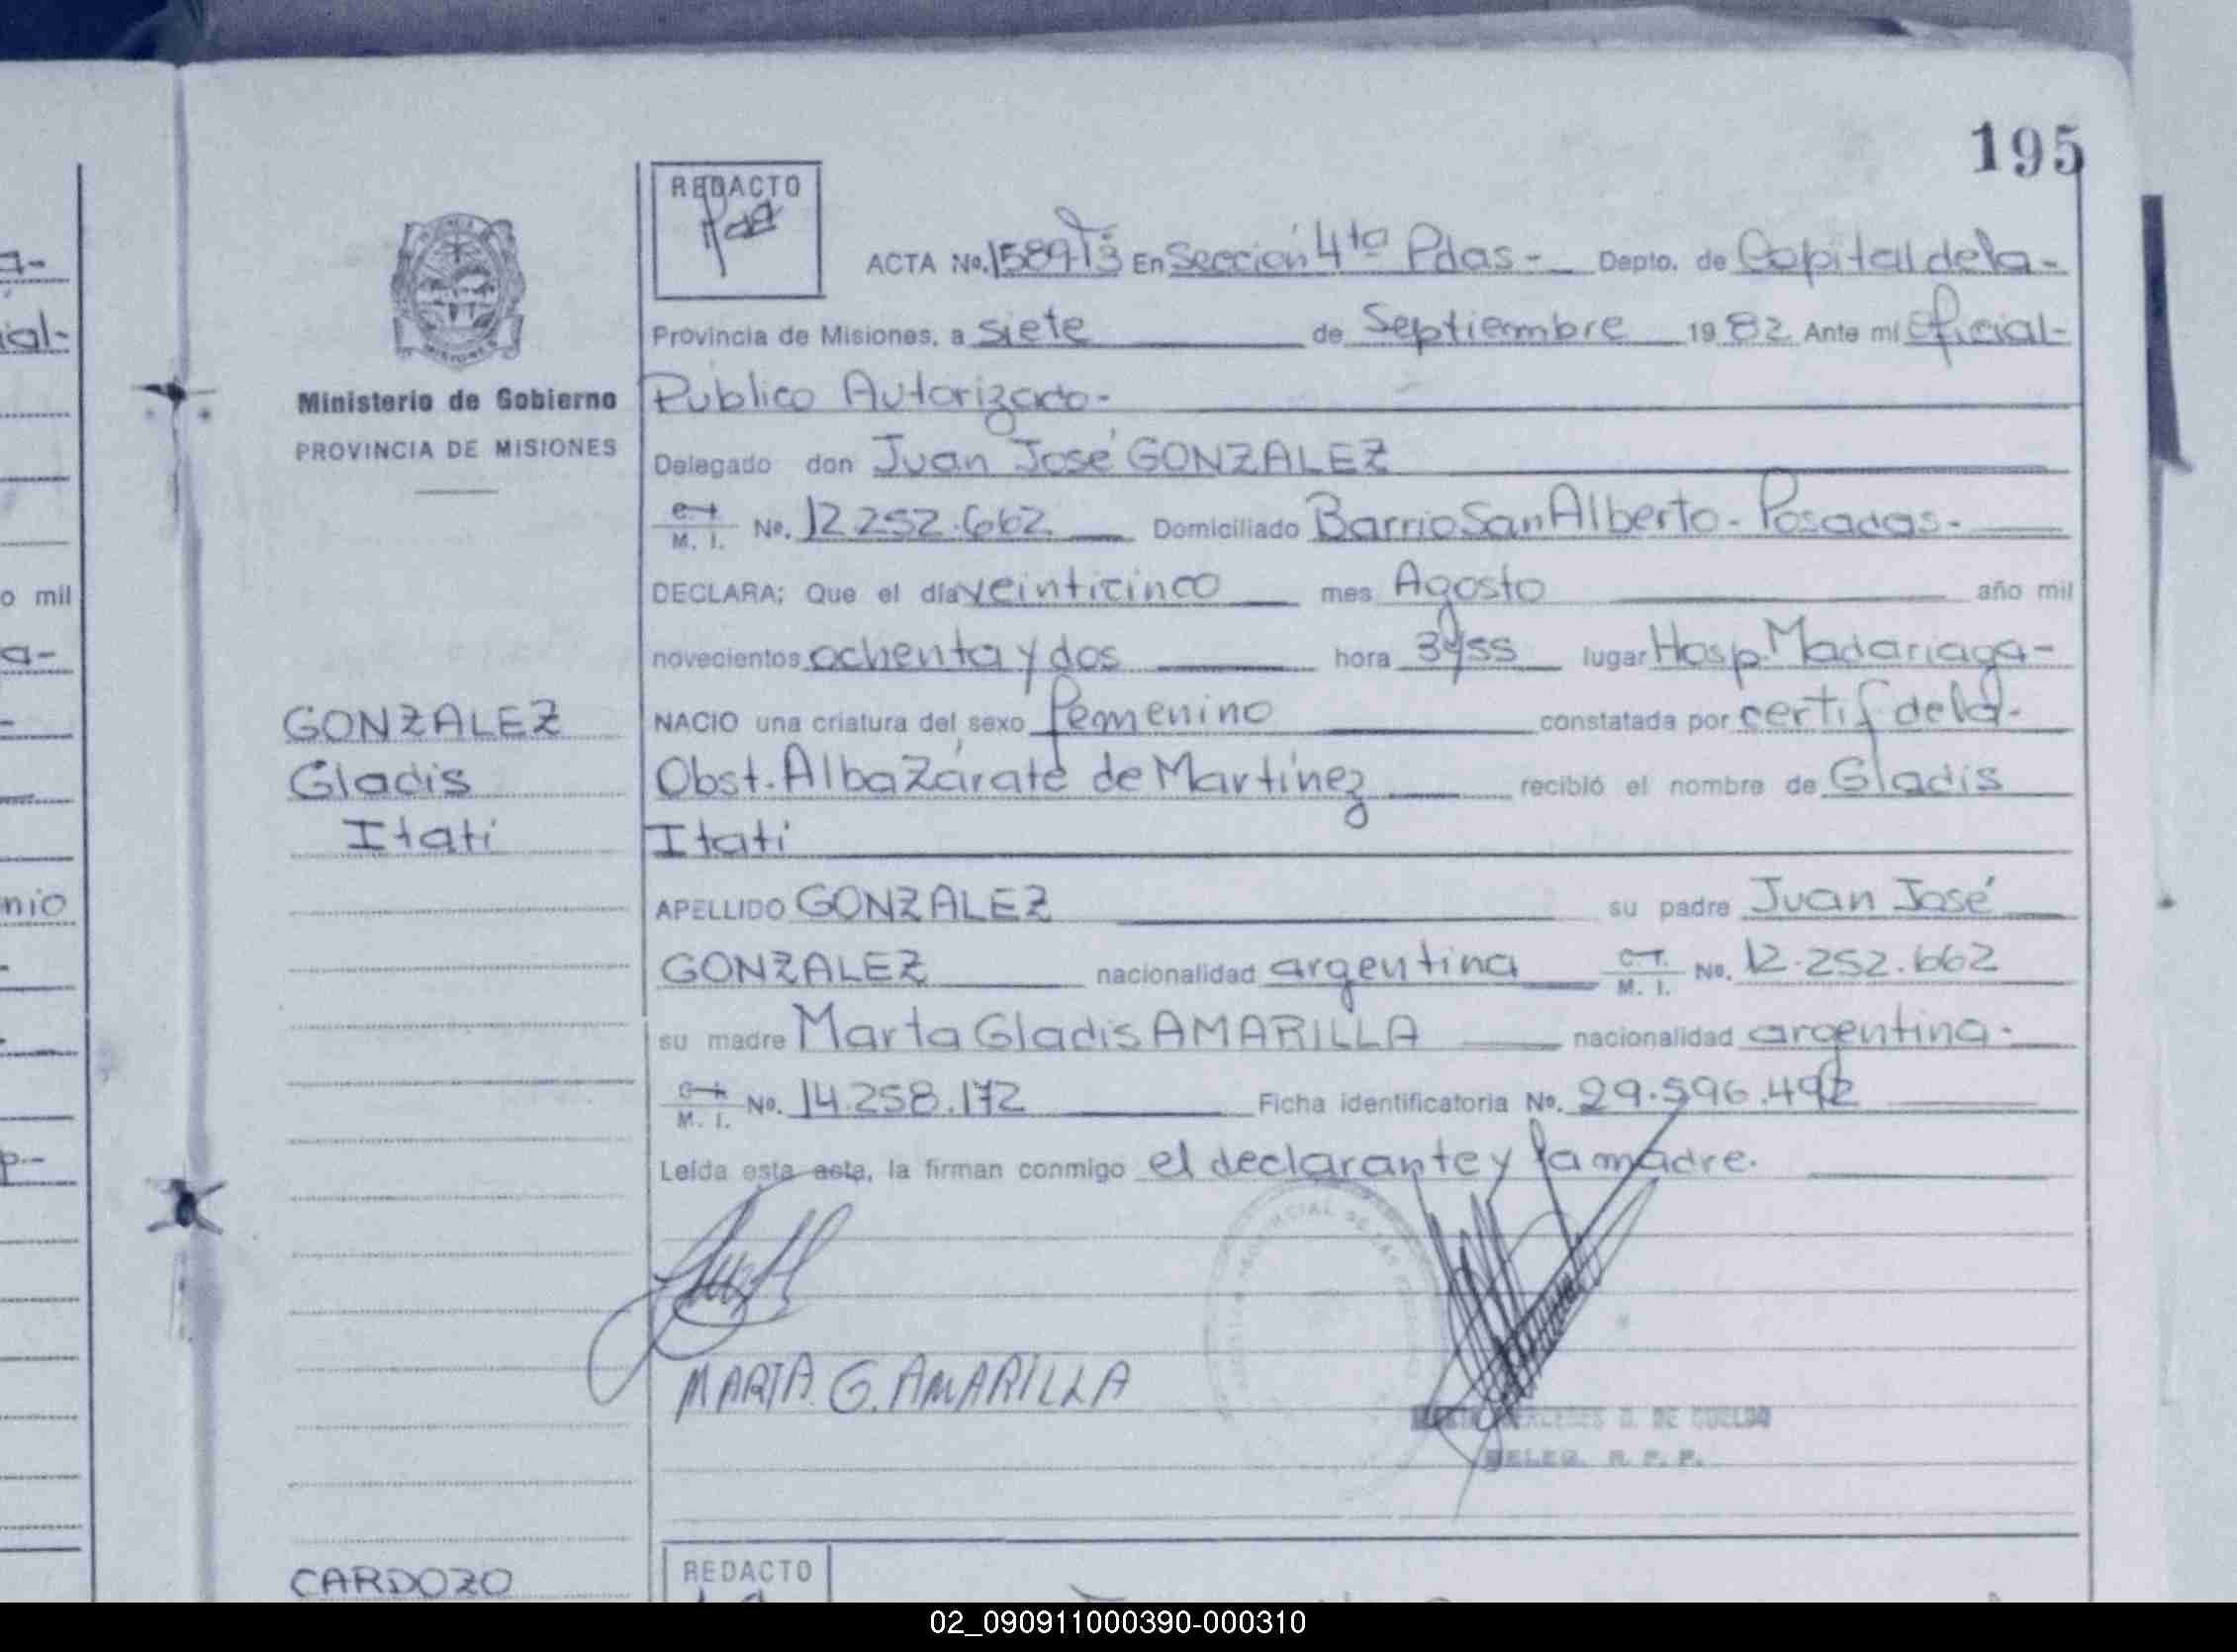 195
REDACTO
ACTA No. 1589 T3 En Sección 4ta Pdas - Depto. de Capital de la -
Provincia de Misiones, a siete de Septiembre 1982 Ante mí Oficial -
Ministerio de Gobierno
Público Autorizado -
PROVINCIA DE MISIONES
Delegado don Juan José GONZALEZ
M. I. No. 12.252.662 Domiciliado Barrio San Alberto - Posadas -
DECLARA: Que el día veinticinco mes Agosto año mil
novecientos ochenta y dos hora 3y55 lugar Hosp. Madariaga -
GONZALEZ
NACIO una criatura del sexo femenino constatada por certif de la -
Gladis
Obst. Alba Zárate de Martínez recibió el nombre de Gladis
Itatí
Itatí
APELLIDO GONZALEZ su padre Juan José
GONZALEZ nacionalidad argentina M. I. No. 12.252.662
su madre Marta Gladis AMARILLA nacionalidad argentina -
M. I. No. 14.258.172 Ficha identificatoria No. 29.596.492
Leída esta acta, la firman conmigo el declarante y la madre.
MARTA G. AMARILLA
MERCEDES D. DE CUELDO
DELEG. R. P. P.
CARDOZO
REDACTO
o mil
nio
02_090911000390-000310